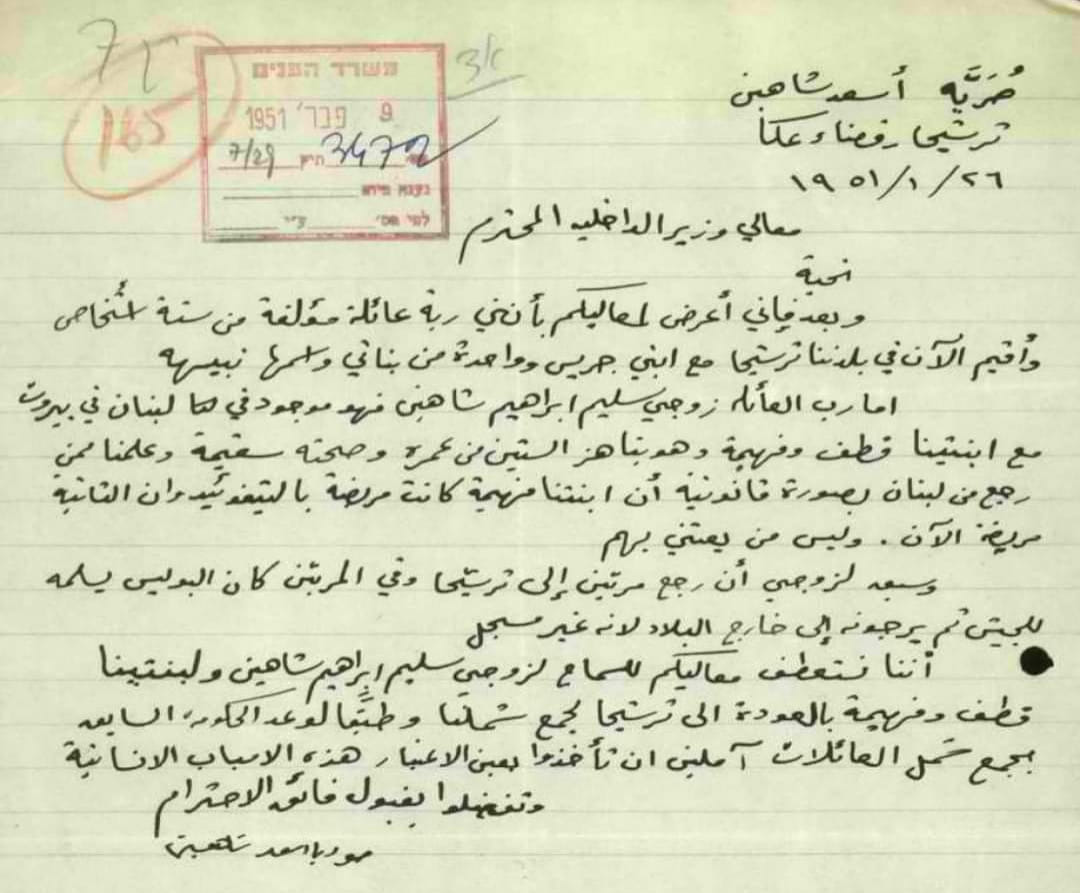 75
165
אב
משרד הפנים
9 פבר' 1951
3472 תיק 7/29
נענה מיום
לפי מס' ע"י
حُريَّه أسعد شاهين
ترشيحا، قضاء عكا
٢٦/١/١٩٥١
معالي وزير الداخلية المحترم
تحية
وبعد فإني أعرض لمعاليكم بأنني ربة عائلة مؤلفة من ستة اشخاص
وأقيم الآن في بلدتنا ترشيحا مع ابني جريس وواحدة من بناتي واسمها نبيهه
اما رب العائله زوجي سليم ابراهيم شاهين فهو موجود في لبنان في بيروت
مع ابنتينا قطف وفهيمة وهو يناهز الستين من عمره وصحته سقيمة وعلمنا ممن
رجع من لبنان بصورة قانونية أن ابنتنا فهيمة كانت مريضة بالتيفوئيد وان الثانية
مريضة الآن . وليس من يعتني بهم
وسبق لزوجي أن رجع مرتين إلى ترشيحا وفي المرتين كان البوليس يسلمه
للجيش ثم يرجعونه إلى خارج البلاد لانه غير مسجل
أننا نستعطف معاليكم للسماح لزوجي سليم إبراهيم شاهين ولبنتينا
قطف وفهيمة بالعودة الى ترشيحا لجمع شملنا وطبقًا لوعد الحكومة السابق
بجمع شمل العائلات آملين ان تأخذوا بعين الاعتبار هذه الاسباب الانسانية
وتفضلوا بقبول فائق الاحترام
اسعد شاهين